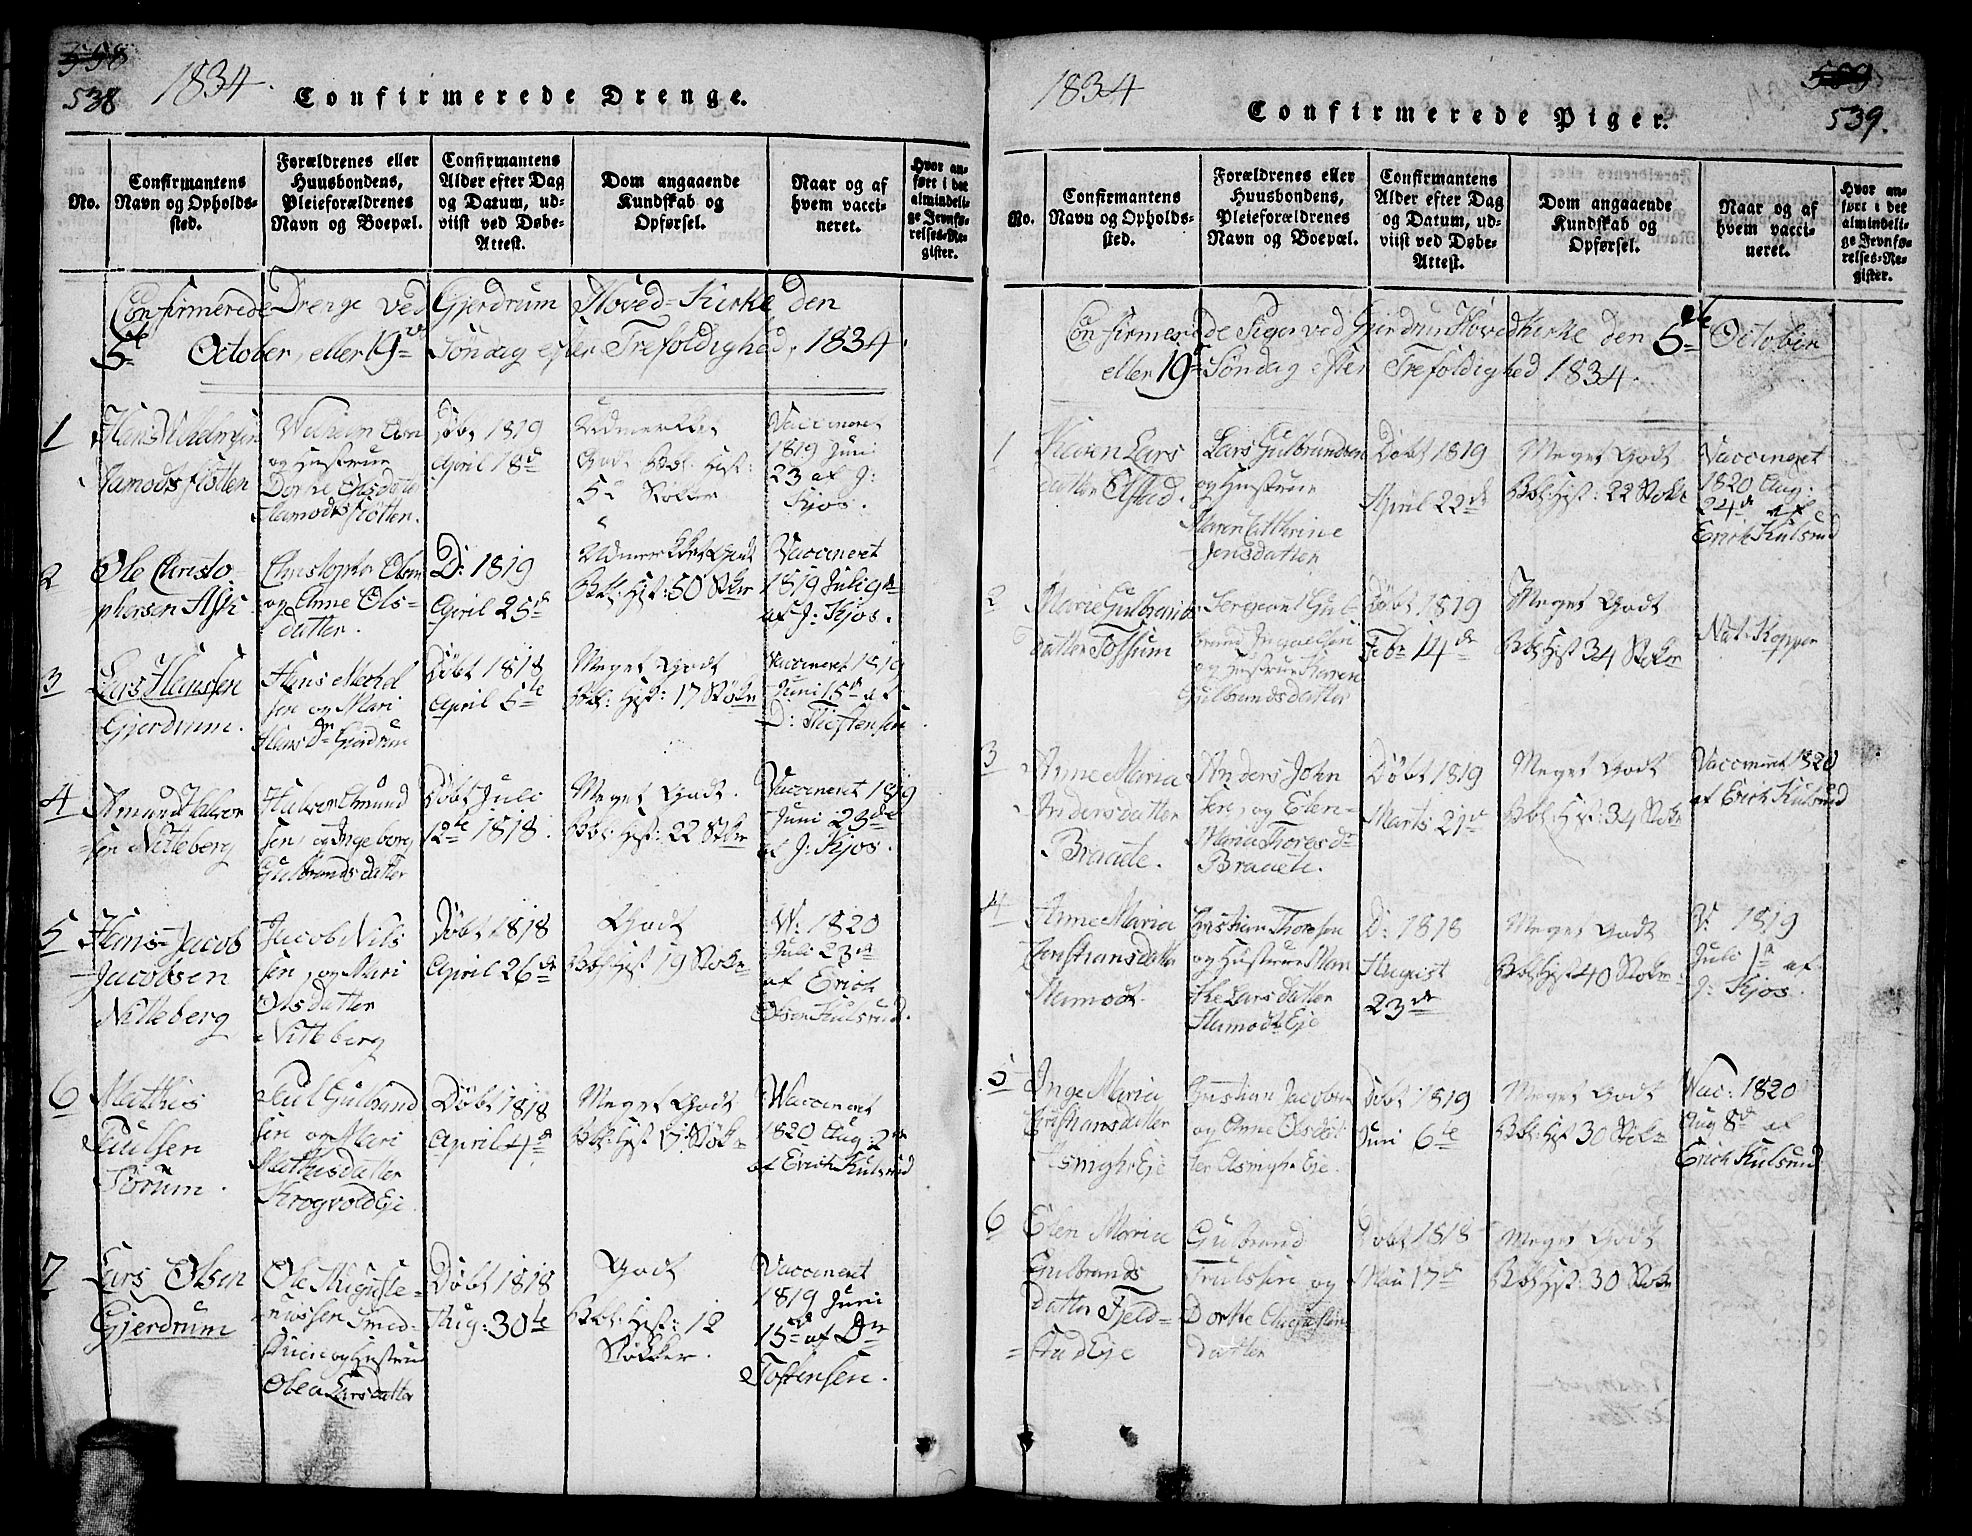 538
538
1834.
Confirmerede Drenge.
No.
Confirmantens
Navn og Opholds-
sted.
Forældrenes eller
Huusbondens,
Pleieforældrenes
Navn og Boepæl.
Confirmantens
Alder efter Dag
og Datum, ud-
viist ved Døbe-
Attest.
Dom angaaende
Kundskab og
Opførsel.
Naar og af
hvem vacci-
neret.
Hvor an-
ført i det
almindeli-
ge Jevnfø-
relses-Re-
gister.
Confirmerede Drenge ved Gjerdrum Hoved-Kirke den
5te October, eller 19de Søndag efter Trefoldighed, 1834.
1
Hans Vilhelmsen
Hamodtsflotten
Wilhelm Olsen
og Hustrue
Dorthe Olsdatter
Hamodtsflotten.
Døbt 1819
April 18de
Udmerket
Godt. Bbl: Hist:
Stÿkker
Vaccineret
1819 Juni
23 af J:
Kjos.
2
Ole Christo-
phersen Ask
Christopher Olsen
og Anne Ols-
datter.
D: 1819
April 25de
Udmerkket Godt
Bbl: Hist: 50 Stÿkr
Vaccineret
1819 Juli 9de
af J: Kjos.
3
Lars Hanssen
Gjerdrum.
Hans Michel
sen og Mari
Hans Dr Gjerdrum
Døbt 1818
April 5te
Meget Godt
Bbl: Hist: 17 Støkr
Vaccineret 1819
Juni 15de af
D:
4
Amund Halvor
sen Nitteberg
Halvor Amund
sen, og Ingeborg
Gulbrandsdatter
Døbt Juli
12te 1818.
Meget Godt.
Bbl: Hist: 22 Støkr
Vaccineret 1819
Juni 23de
af J: Kjos.
5
Hans Jacob
Jacobsen
Nitteberg
Jacob Nils
sen, og Mari
Olsdatter
Nitteberg
Døbt 1818
April 26de
Godt
Bbl: Hist 19 Støkr
V: 1820
Juli 23de
af Erich
Olsen Kulsrud.
6
Mathis
Paulsen
Sørum.
Paul Gulbrand
sen og Mari
Mathisdatter
Krogvold Eje
Døbt 1818
April 4de
Meget Godt
Bbl: Hist Støkr
Vaccineret
1820 Aug: 2de
af Erich Kulsrud
7
Lars Olsen
Gjerdrum
Ole Auguste-
niussen Smed-
og Hustrue
Olea Larsdatter
Døbt 1818
Aug: 30te
Godt
Bbl: Hist: 12
Støkker.
Vaccineret
1819 Juni
15de af Dr
Tostensen.
1834
Confirmerede Piger.
509
539.
No.
Confirmantens
Navn og Opholds-
sted.
Forældrenes eller
Huusbondens,
Pleieforældrenes
Navn og Boepæl.
Confirmantens
Alder efter Dag
og Datum, ud-
viist ved Døbe-
Attest.
Dom angaaende
Kundskab og
Opførsel.
Naar og af
hvem vacci-
neret.
Hvor an-
ført i det
almindeli-
ge Jevnfø-
relses-Re-
gister.
Confirmerede Piger ved Gjerdrum Hovedkirke den 5te October
eller 19de Søndag efter Trefoldighed 1834.
1
Karen Lars
datter Elstad.
Lars Gulbrandsen
og Hustrue
Maren Cathrine
Jensdatter
Døbt 1819
April 22de
Meget Godt
Bbl: Hist: 22 Støkr
Vaccineret
1820 Aug.
24de af
Erich Kulsrud
2
Marie Gulbrands
datter Fossum
Sergeant Gul
brand
og Hustrue Karen
Gulbrandsdatter
Døbt 1819
Febr 14de
Meget Godt
Bbl: Hist 34 Støkr
Nat: Kopper
3
Anne Maria
Andersdatter
Braaete.
Anders John
sen, og Elen-
Maria Thoresdr
Braaete.
Døbt 1819
Marts 21de
Meget Godt
Bbl: Hist: 34 Støkr
Vaccineret 1820
af Erich Kulsrud
4
Anne Maria
Christiansdatter
Hamodt.
Christian Thoresen
og Hustrue Mari
the Larsdatter
Hamodt Eje
D: 1818
August
23de
Meget Godt
Bbl: Hist 40 Støkr
V: 1819
Juli 1de af
J: Kjos.
5
Inge Maria
Christiansdatter
Asmyhr Eje
Christian Jacobsen
og Anne Olsdat
ter Asmyhr Eje.
Døbt 1819
Juni 6te
Meget Godt
Bbl: Hist 30 Støkr
Vac: 1820
Aug 8de af
Erich Kulsrud
6
Elen Maria
Gulbrands
datter Fjeld-
stad Eje
Gulbrand
Trulssen og
Dorthe Augustins
datter
Døbt 1818
Mai 17de
Meget Godt
Bbl: Hist: 30 Støkr